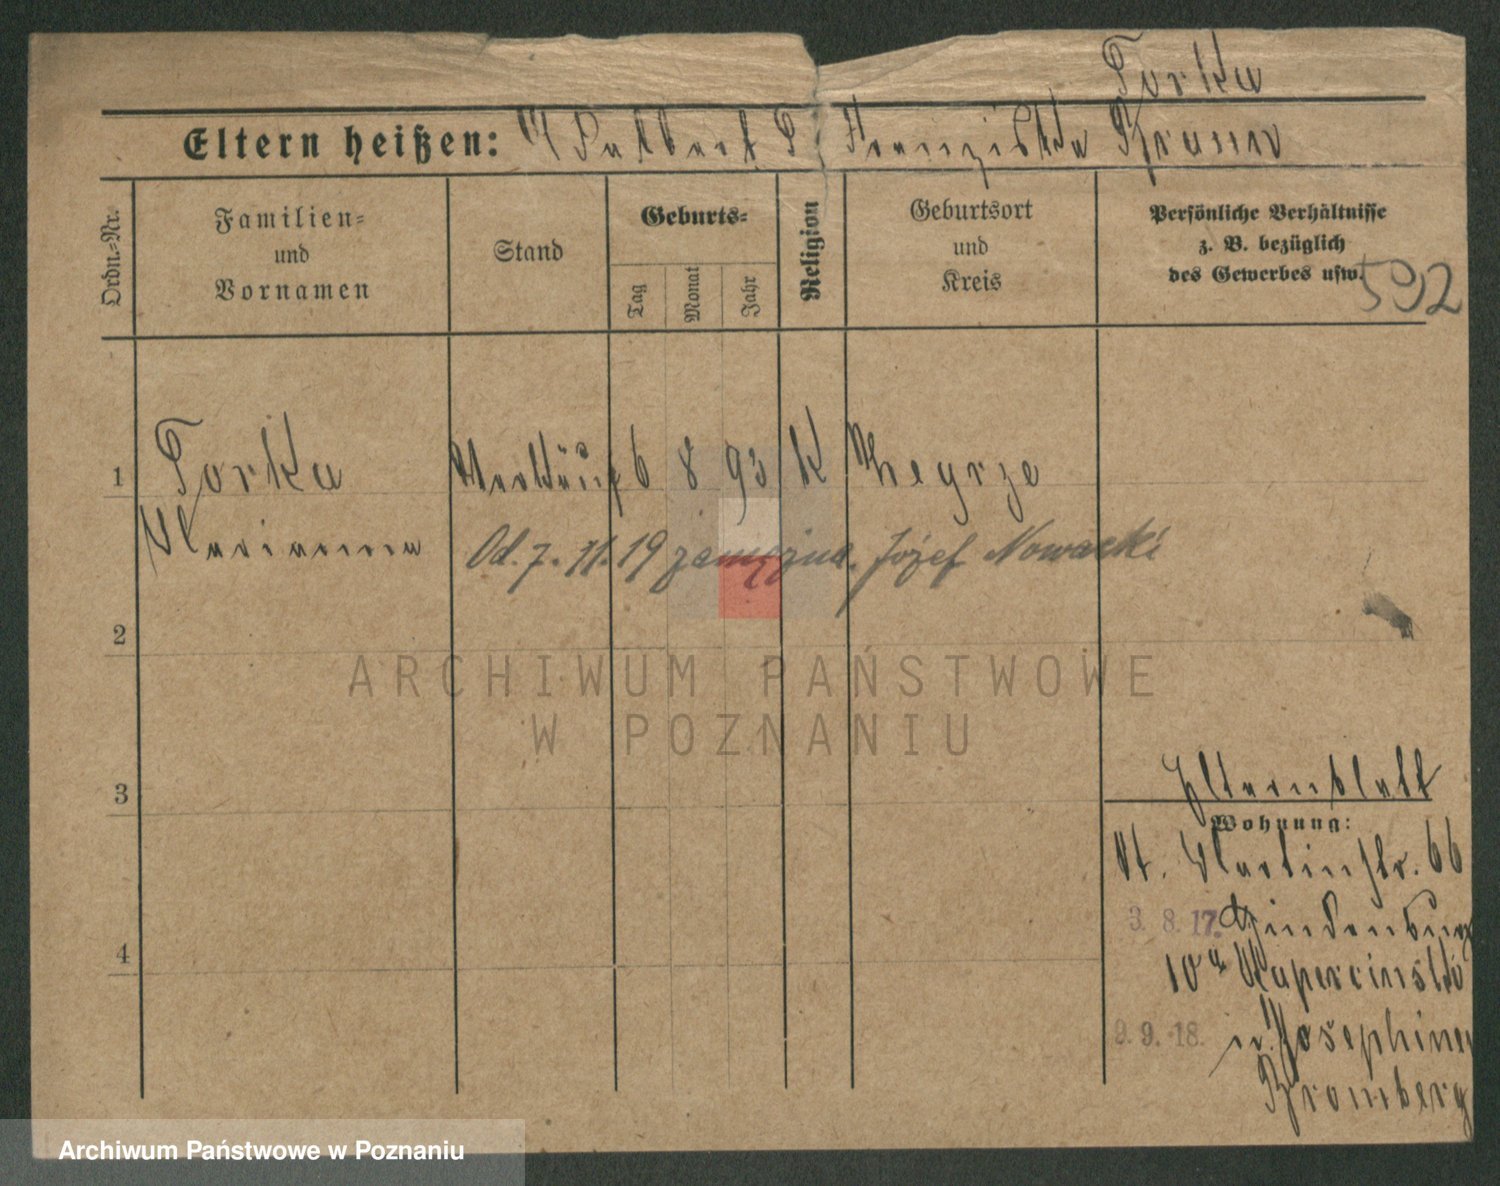 Torka
Eltern heißen: Adalbert T. Franziska Braun
Ordn.-Nr.
Familien-
und
Vornamen
Stand
Geburts-
Tag
Monat
Jahr
Religion
Geburtsort
und
Kreis
Persönliche Verhältnisse
z. B. bezüglich
des Gewerbes usw.
592
1 Torka 6 8 93 K Zegrze
Marianna Od. 7. 11. 19 zamężna. Józef Nowacki
2
3
4
ARCHIWUM PAŃSTWOWE
W POZNANIU
Elternblatt
Wohnung:
St. Martinstr. 66
3. 8. 17. Hindenburg
10a Kupercinski
9. 9. 18. Josephinen
Bromberg
Archiwum Państwowe w Poznaniu